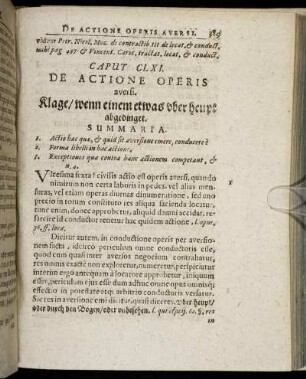 DE ACTIONE OPERIS AVERSI.
videtur Petr. Nicol. Moz. de contractib. tit. de locat. & conduct.
mihi pag. 497 & Vincent. Carot. tractat. locat. & conduct.
CAPUT CLXI.
DE ACTIONE OPERIS
aversi.
Klage / wenn einem etwas vber heupt
abgedinget.
SUMMARIA.
1. Actio hæc quæ, & quid sit aversione emere, conducere?
2. Forma libelli in hac actione.
3. Exceptiones quæ contra hanc actionem competant, &
n. 4.
ULtesima sexta civilis actio est operis aversi, quando
nimirum non certa laboris in pedes, vel alias men-
suras, vel etiam operas diurnas dinumeratione, sed uno
pretio in totum constituto res aliqua facienda locatur,
tine enim, donec approbetur, aliquid damni accidat, re-
spicere id conductor tenetur hac quidem actione, l. opus,
pr. ff. loca.
Dicitur autem, in conductione operis per aversio-
nem facta, idcirco periculum omne conductoris esse,
quod cum summatim aversos negotium contrahatur,
res nominis exacte non explorentur, numerentur, perspiciantur
interim ergo antequam à locatore approbetur, iniquum
esset, periculum ejus esse dum adhuc onus operis omnisq;
effectio in potestate atq; arbitrio conductoris versatur.
Sic res in aversione emi dicitur, quasi diceres, vber heupt /
oder durch den Bogen / oder vnbesehen. l. quod sæpe, 35. §. res
in